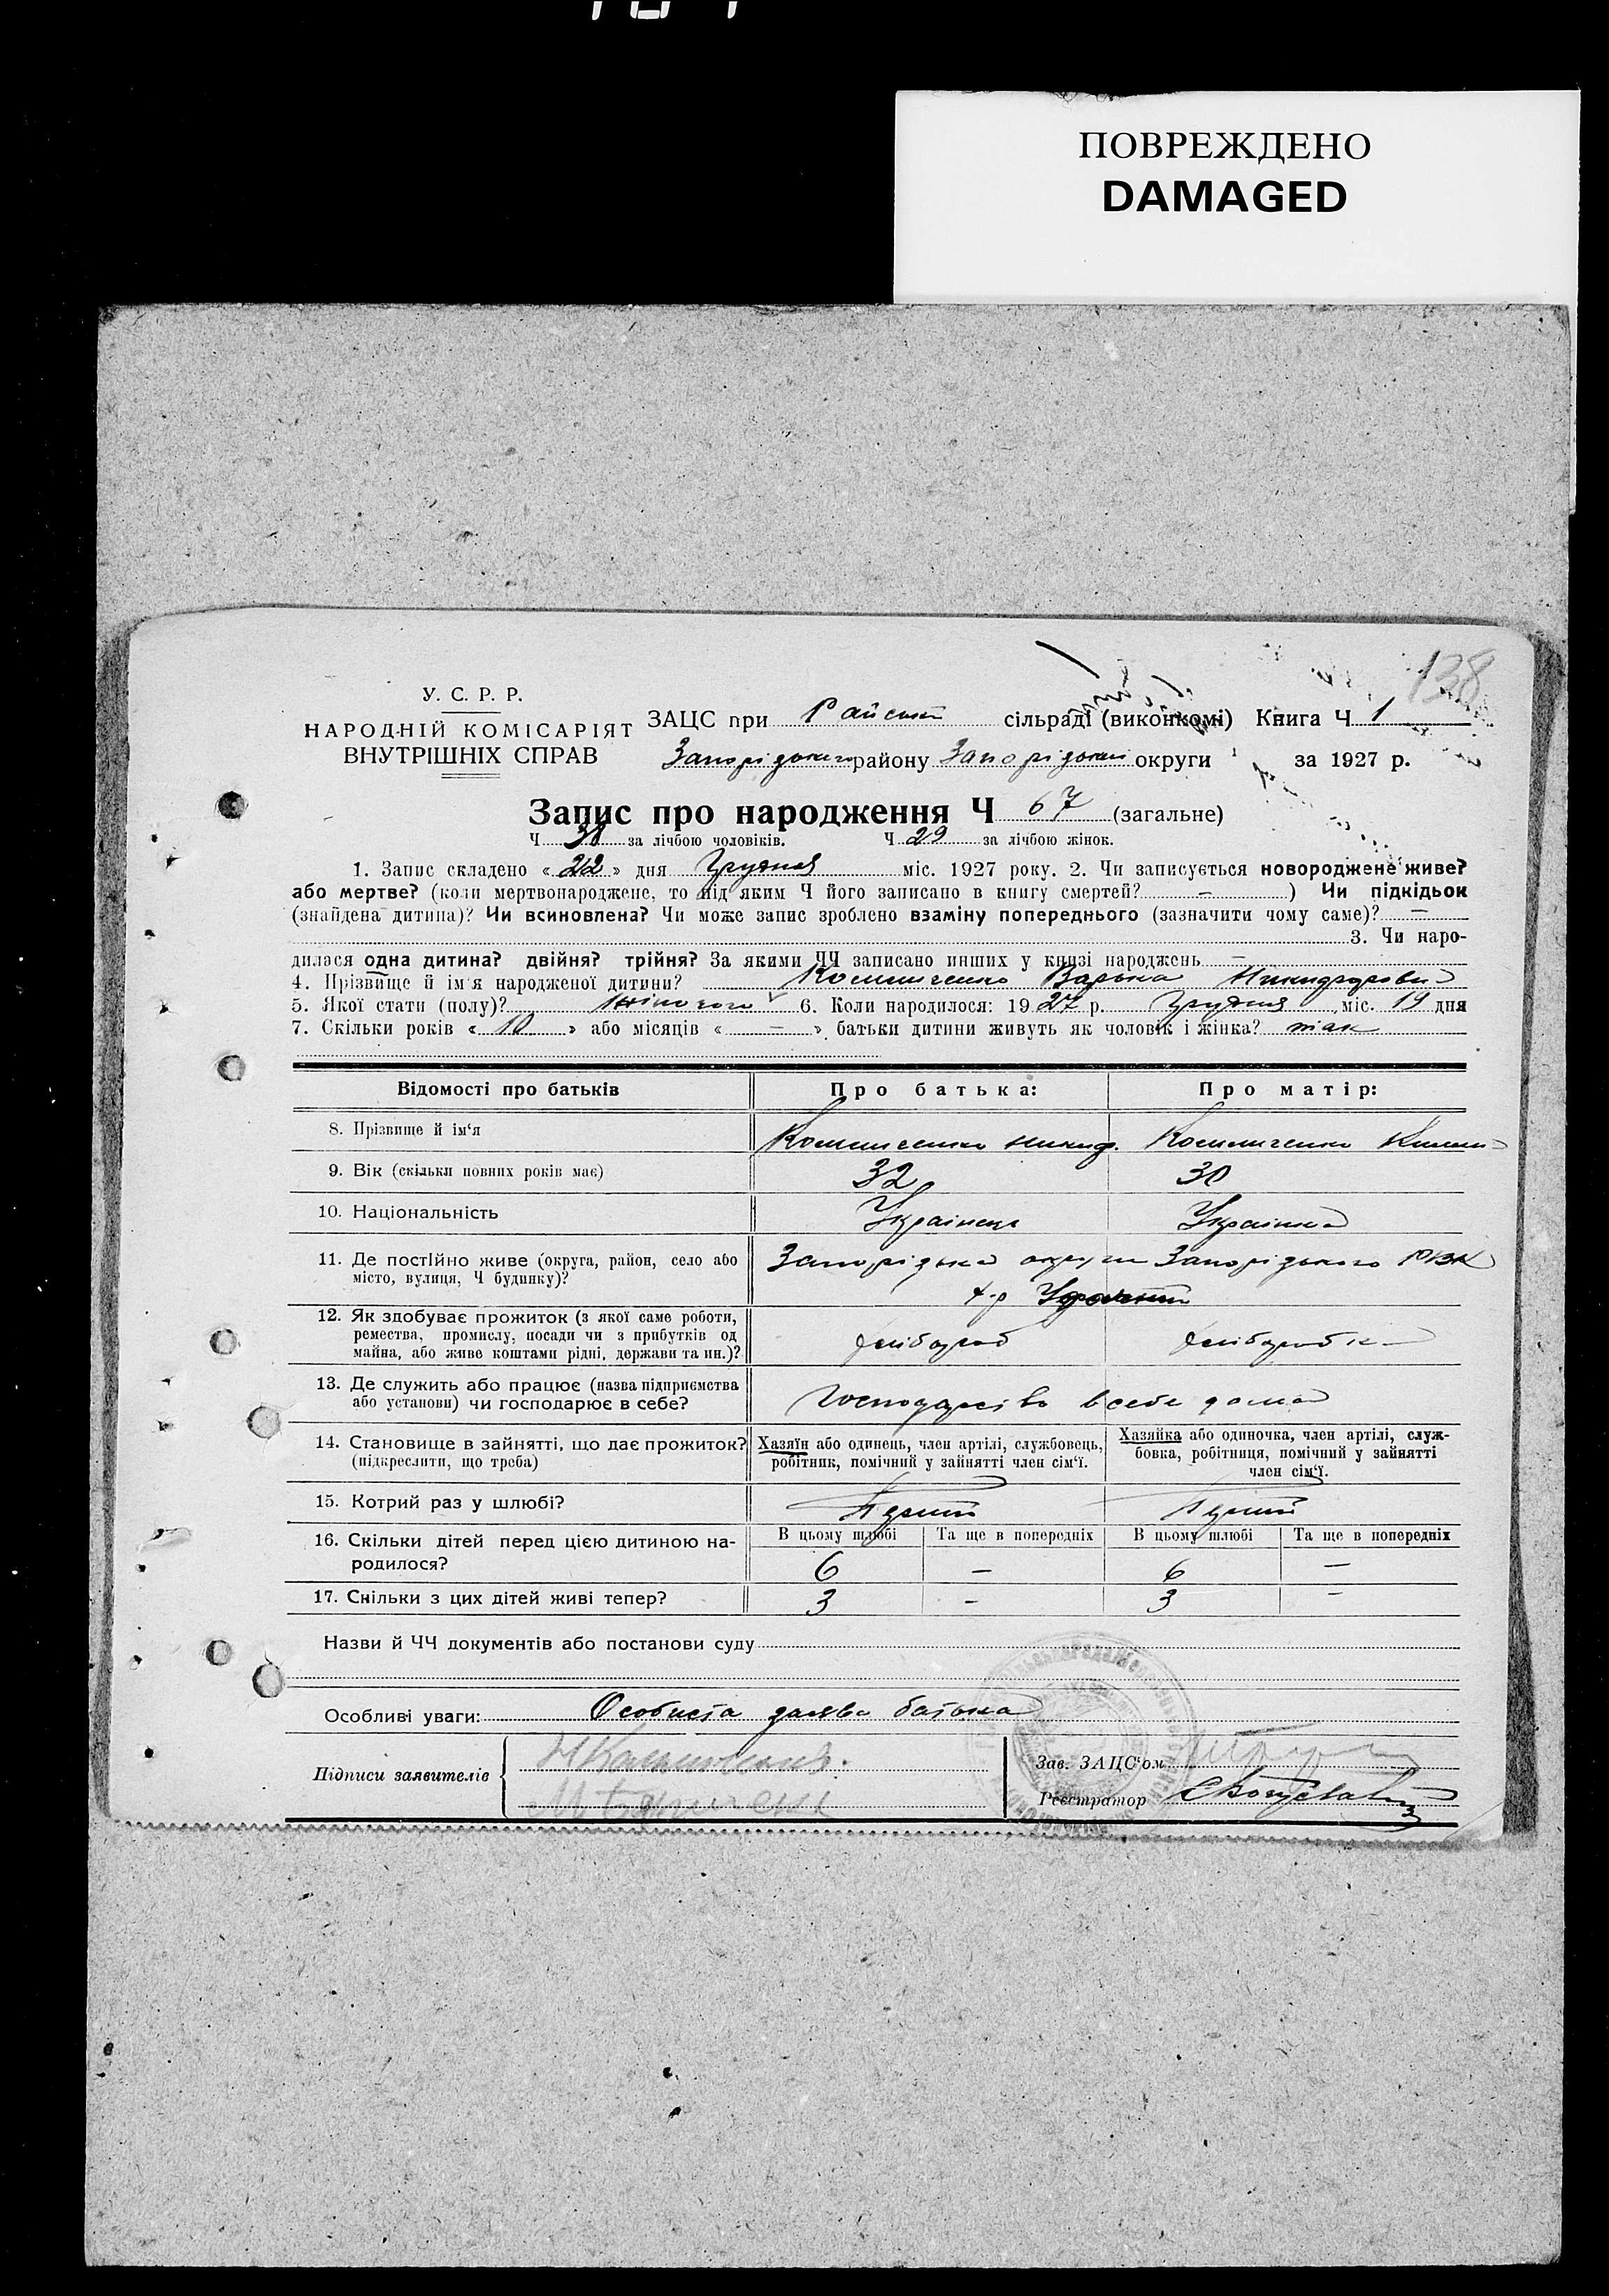 ПОВРЕЖДЕНО
DAMAGED
138
У. С. Р. Р.
НАРОДНІЙ КОМІСАРІЯТ
ВНУТРІШНІХ СПРАВ
ЗАЦС при Райській сільраді (виконкомі) Книга Ч 1
Запорізького району Запорізької округи за 1927 р.
Запис про народження Ч 67 (загальне)
Ч 38 за лічбою чоловіків. Ч 29 за лічбою жінок.
1. Запис складено « 22 » дня Грудня міс. 1927 року. 2. Чи записується новороджене живе?
або мертве? (коли мертвонароджене, то під яким Ч його записано в книгу смертей? — ) Чи підкідьок
(знайдена дитина)? Чи всиновлена? Чи може запис зроблено взаміну попереднього (зазначити чому саме)? —
3. Чи наро-
дилася одна дитина? двійня? трійня? За якими ЧЧ записано инших у книзі народжень —
4. Прізвище й ім'я народженої дитини? Варька
5. Якої стати (полу)? жіночого 6. Коли народилося: 1927 р. Грудня міс. 19 дня
7. Скільки років « 10 » або місяців « — » батьки дитини живуть як чоловік і жінка? так
Відомості про батьків Про батька: Про матір:
8. Прізвище й ім'я
9. Вік (скільки повних років має) 32 30
10. Національність Українець Українка
11. Де постійно живе (округа, район, село або Запорізька округи Запорізького РВК
місто, вулиця, Ч будинку)? х-р
12. Як здобуває прожиток (з якої саме роботи,
ремества, промислу, посади чи з прибутків од хлібороб хліборобка
майна, або живе коштами рідні, держави та ин.)?
13. Де служить або працює (назва підприємства
або установи) чи господарює в себе? Господарство в себе дома
14. Становище в зайнятті, що дає прожиток? Хазяїн або одинець, член артілі, службовець, Хазяйка або одиночка, член артілі, служ-
(підкреслити, що треба) робітник, помічний у зайнятті член сім'ї. бовка, робітниця, помічний у зайнятті
член сім'ї.
15. Котрий раз у шлюбі?
16. Скільки дітей перед цією дитиною на- В цьому шлюбі Та ще в попередніх В цьому шлюбі Та ще в попередніх
родилося? 6 — 6 —
17. Скільки з цих дітей живі тепер? 3 - 3 —
Назви й ЧЧ документів або постанови суду
Особливі уваги: Особиста заява батька
Підписи заявителів
Зав. ЗАЦС'ом
Реєстратор